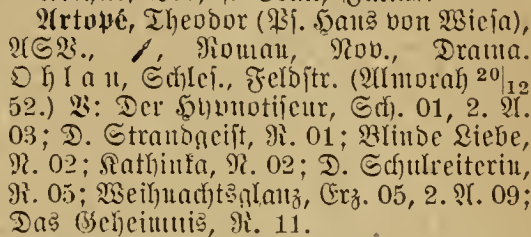 Artopé, Theodor (Ps. Hans von Wiesa),
ASV., Roman, Nov., Drama.
Ohlau, Schles., Feldstr. (Almorah 20|12
52.) V: Der Hypnotiseur, Sch. 01, 2. A.
03; D. Strandgeist, R. 01; Blinde Liebe,
N. 02; Kathinka, N. 02; D. Schulreiterin,
R. 05; Weihnachtsglanz, Erz. 05, 2. A. 09;
Das Geheimnis, R. 11.